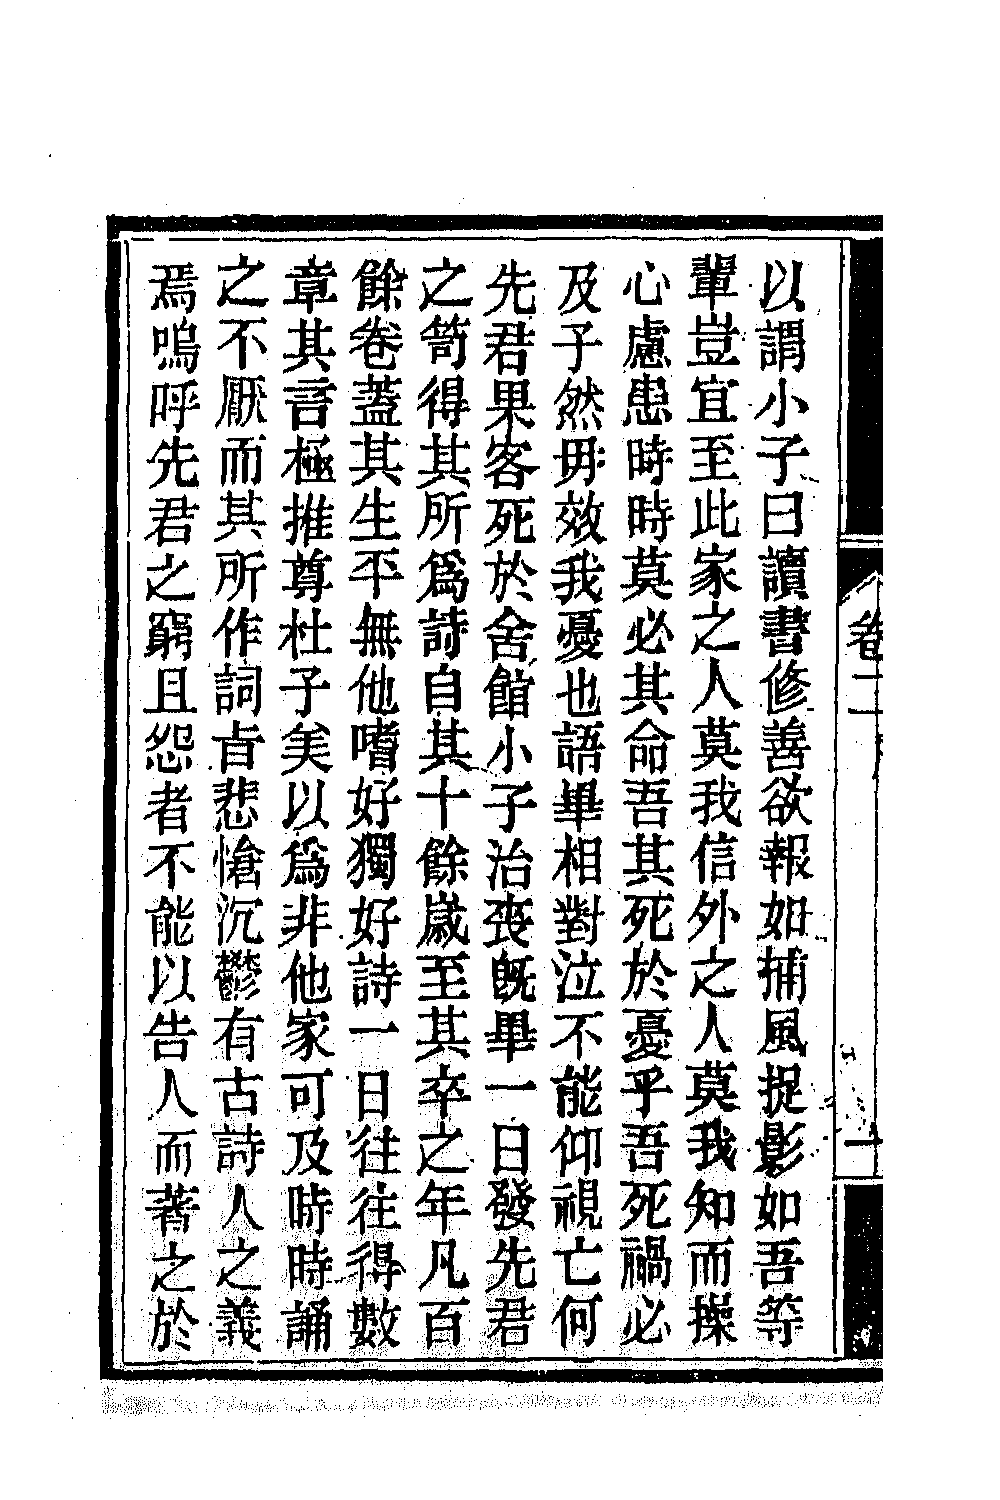 以謂小子曰讀書修善欲報如捕風捉影如吾等
輩豈宜至此家之人莫我信外之人莫我知而操
心慮患時時莫必其命吾其死於憂乎吾死禍必
及子然毋效我憂也語畢相對泣不能仰視亡何
先君果客死於舍館小子治喪既畢一日發先君
之笥得其所爲詩自其十餘歲至其卒之年凡百
餘卷蓋其生平無他嗜好獨好詩一日往往得數
章其言極推尊杜子矣以爲非他家可及時時誦
之不厭而其所作詞旨悲愴沉鬱有古詩人之義
焉嗚呼先君之窮且怨者不能以告人而著之於
卷二
一